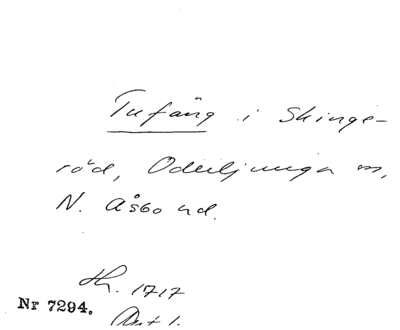 Tufäng i Skinge-
röd, Oderljunga sn,
N. Åsbo hd.
Hr. 1717
Nr 7294.
Art 1.